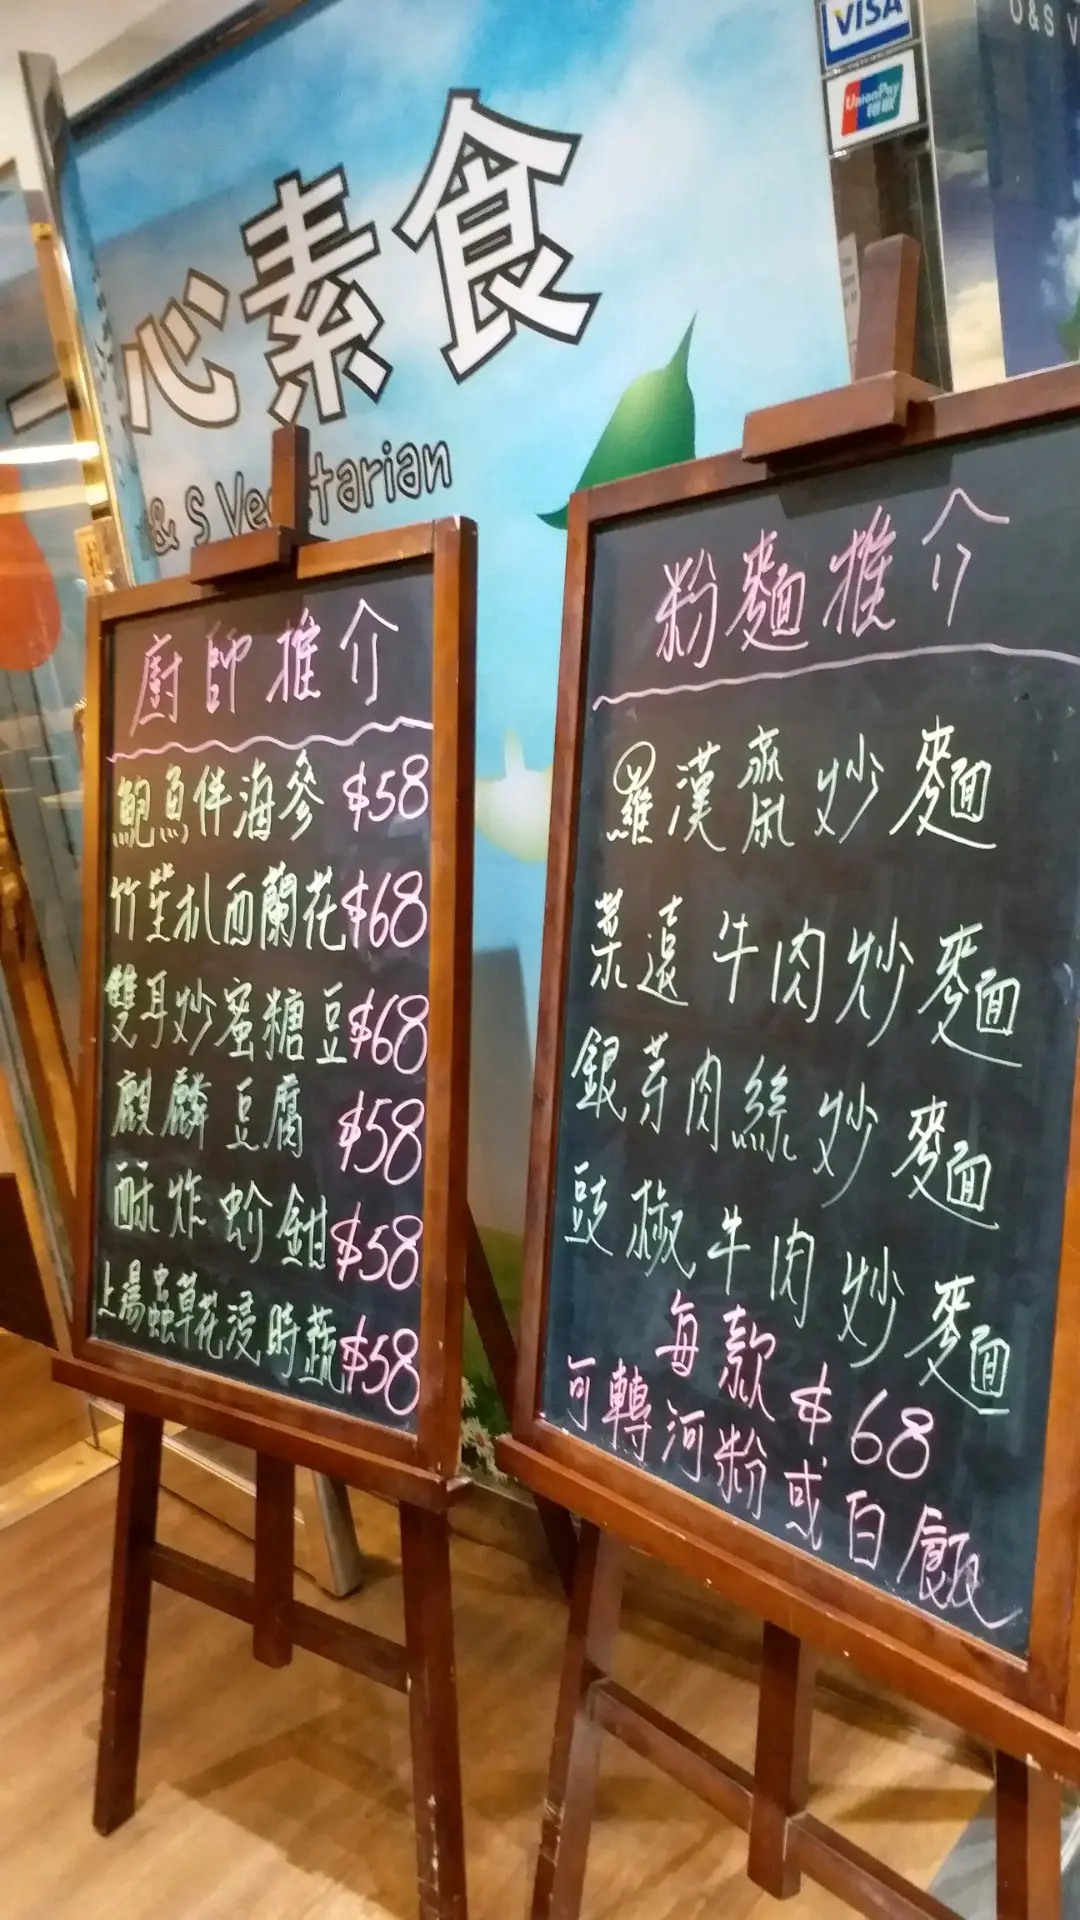 VISA
UnionPay
银联
O&S V
一心素食
& S Vegetarian
廚師推介
鮑魚伴海參 $58
竹笙扒西蘭花 $68
雙耳炒蜜糖豆 $68
麒麟豆腐 $58
酥炸蚧鉗 $58
上湯蟲草花浸時蔬 $58
粉麵推介
羅漢齋炒麵
菜遠牛肉炒麵
銀芽肉絲炒麵
豉椒牛肉炒麵
每款 $68
可轉河粉或白飯